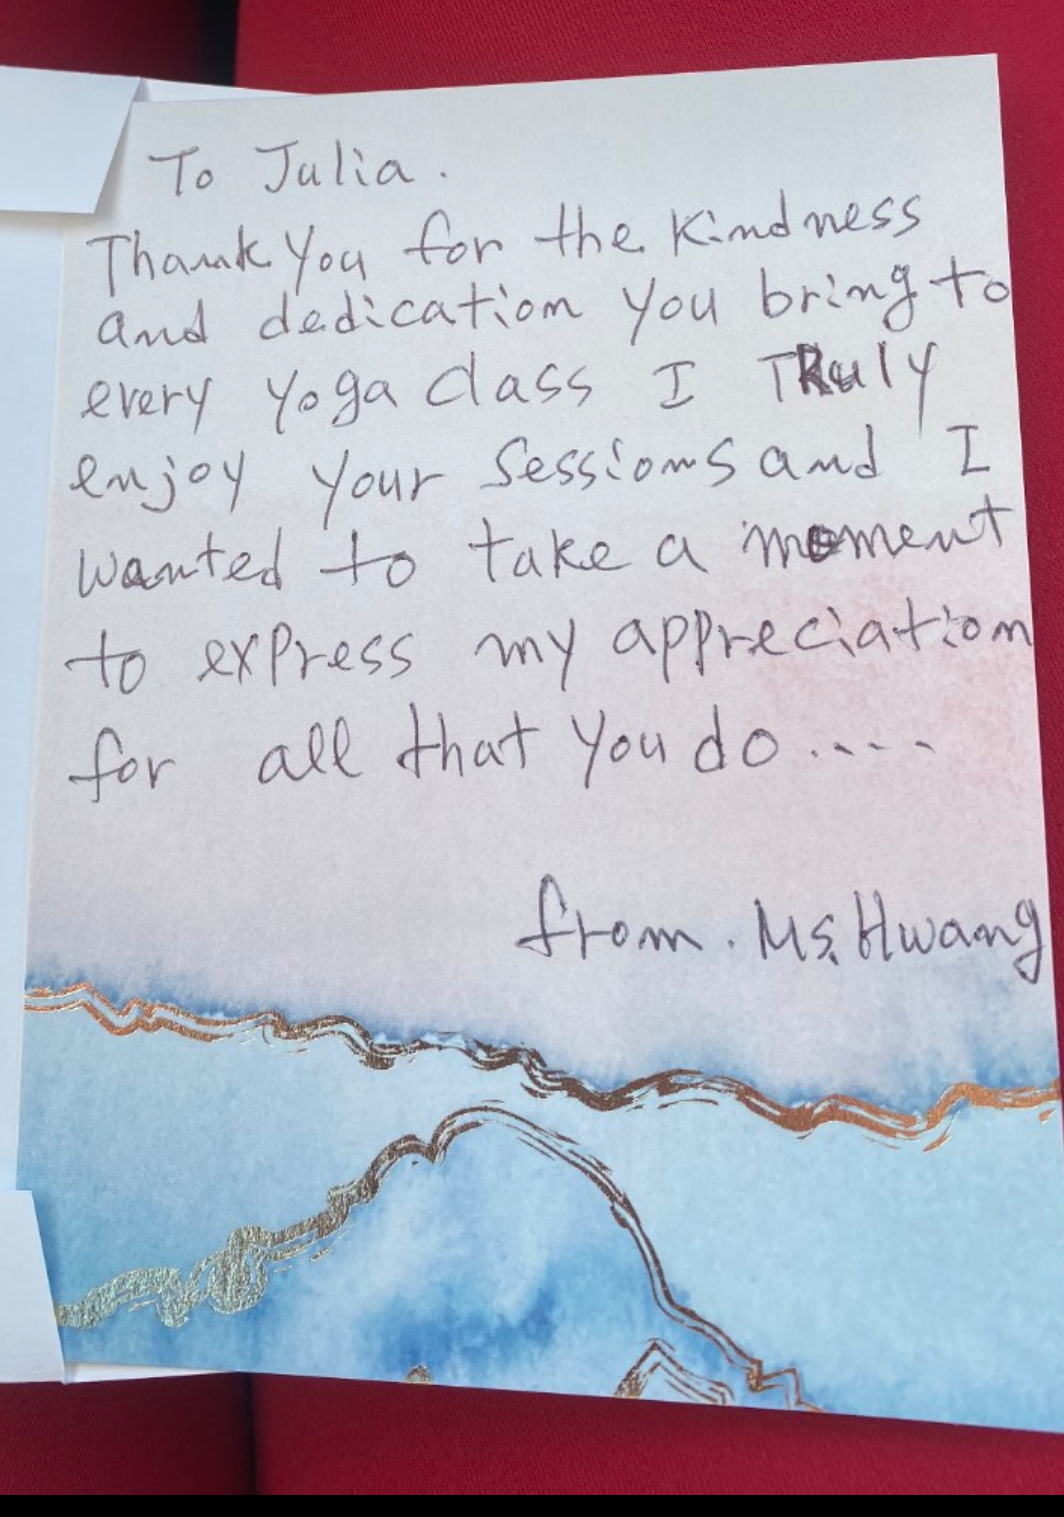 To Julia.
Thank you for the kindness
and dedication you bring to
every yoga class I TRuly
enjoy your sessions and I
wanted to take a moment
to express my appreciation
for all that you do....
from. Ms. Hwang